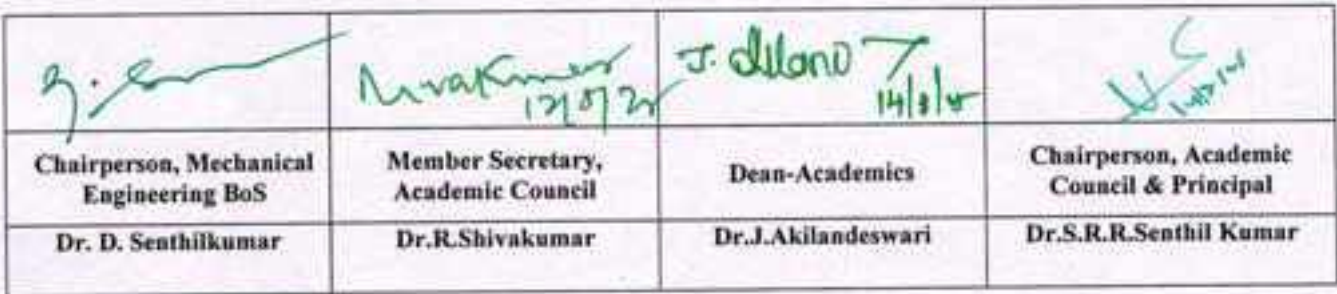 Chairperson, Mechanical Engineering BoS
Member Secretary, Academic Council
Dean-Academics
Chairperson, Academic Council & Principal
Dr. D. Senthilkumar
Dr.R.Shivakumar
Dr.J.Akilandeswari
Dr.S.R.R.Senthil Kumar